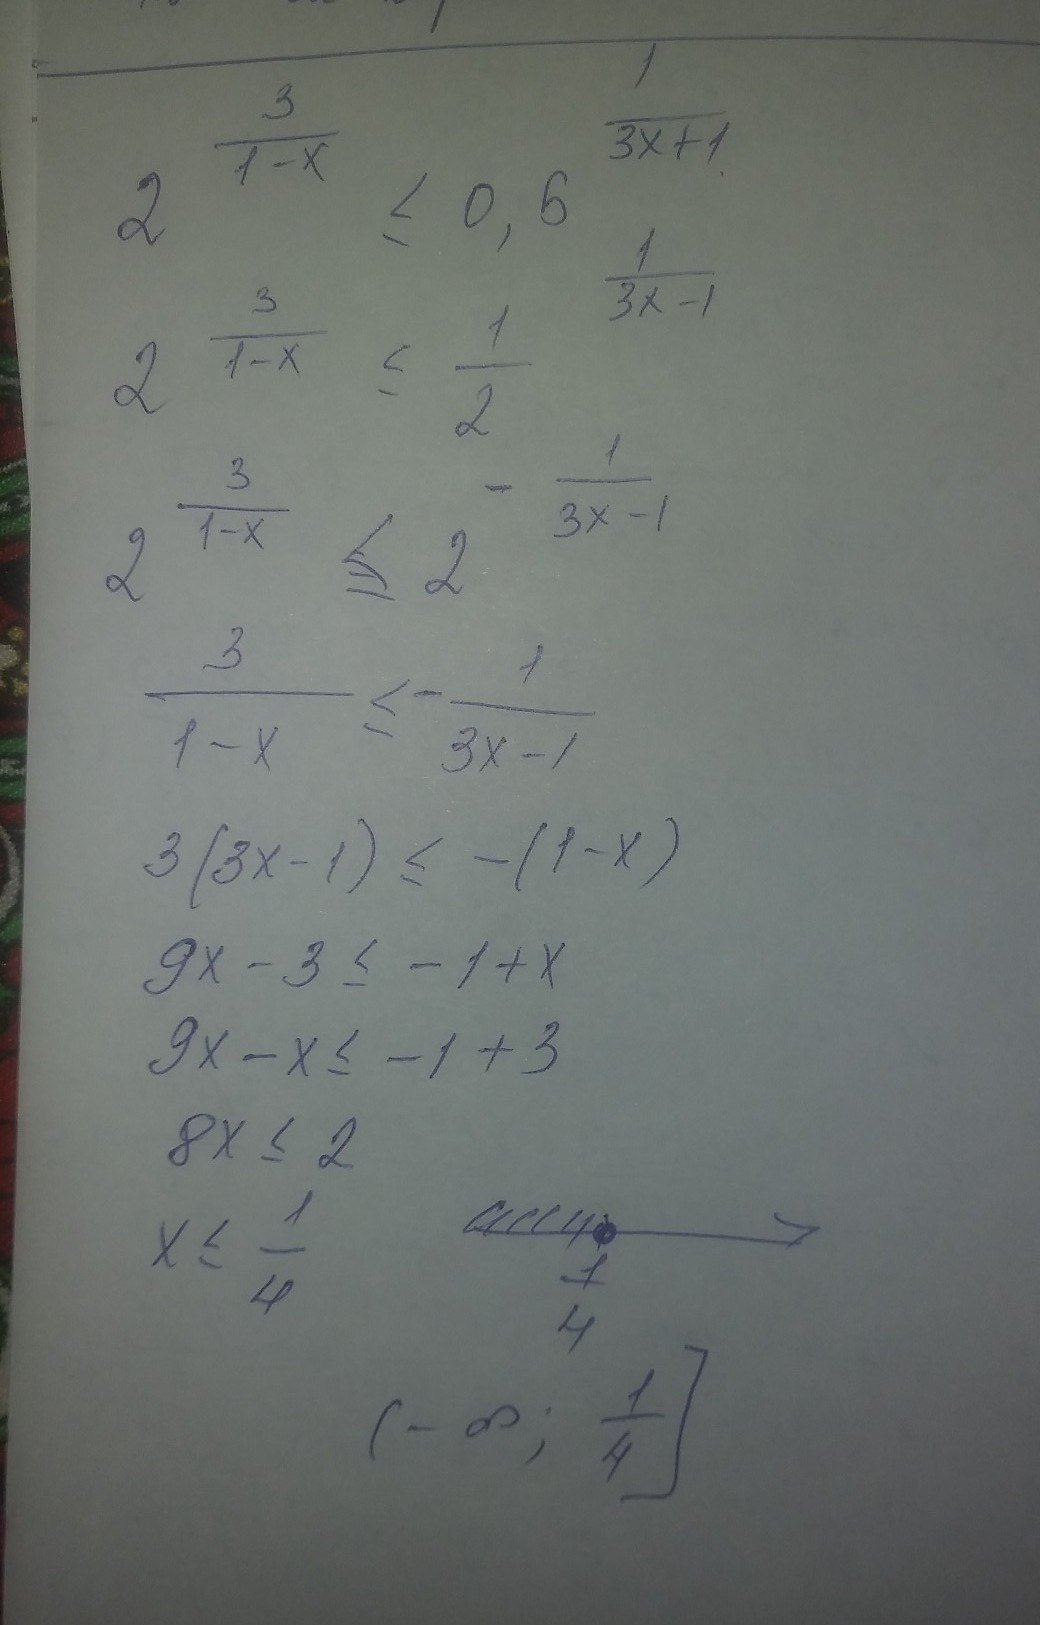 2^(3/(1-x)) ≤ 0,6^(1/(3x+1))
2^(3/(1-x)) ≤ 1/2^(1/(3x-1))
2^(3/(1-x)) ≤ 2^(-1/(3x-1))
3/(1-x) ≤ -1/(3x-1)
3(3x-1) ≤ -(1-x)
9x-3 ≤ -1+x
9x-x ≤ -1+3
8x ≤ 2
x ≤ 1/4
1/4
(-∞; 1/4]